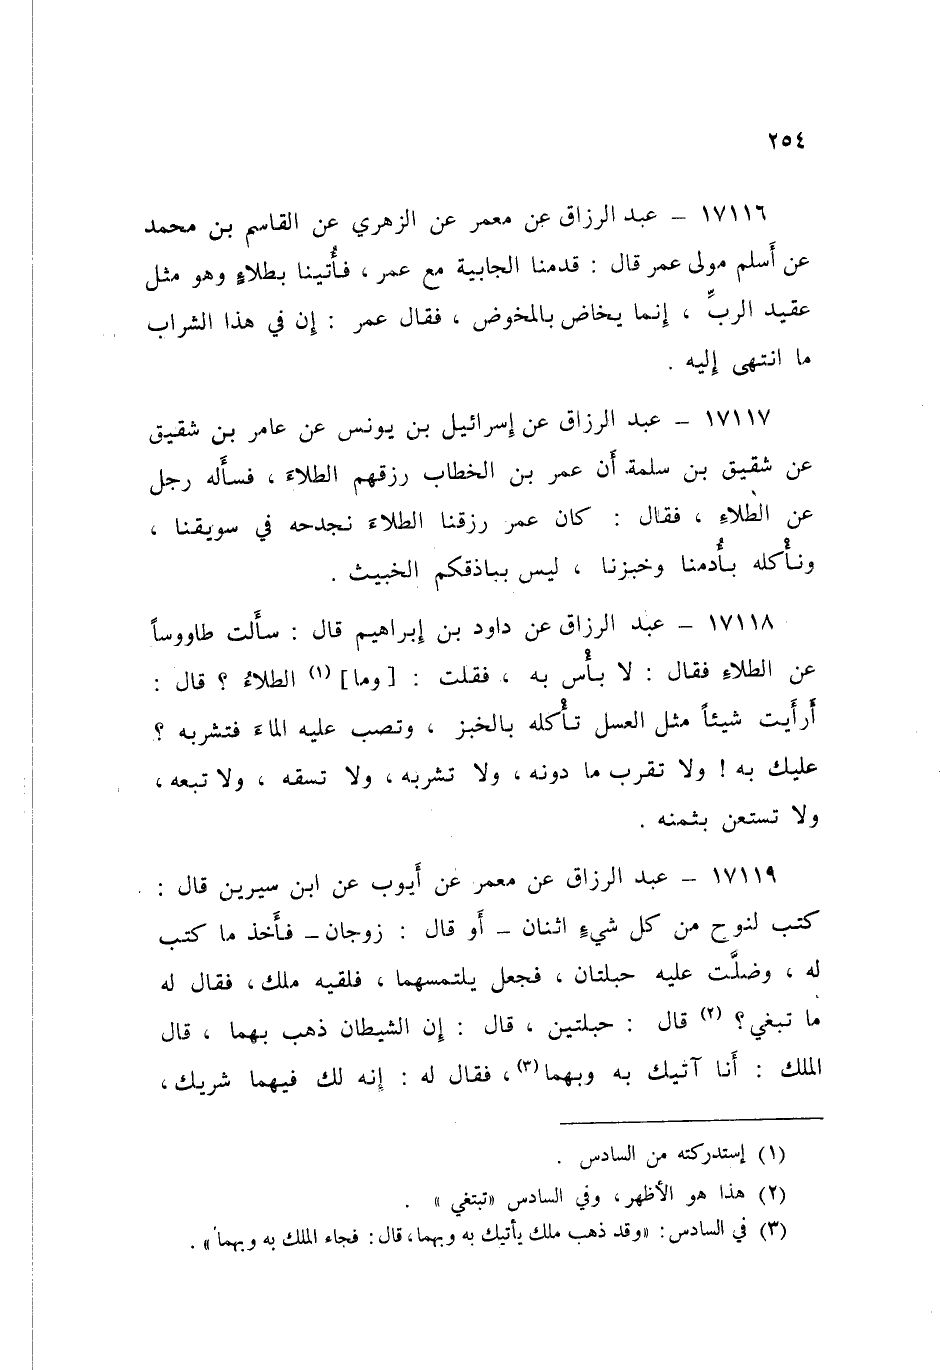 ٢٥٤
١٧١١٦ – عبد الرزاق عن معمر عن الزهري عن القاسم بن محمد
عن أسلم مولى عمر قال : قدمنا الجابية مع عمر ، فأُتينا بطلاءٍ وهو مثل
عقيد الربِّ ، إنما يخاض بالمخوض ، فقال عمر : إن في هذا الشراب
ما انتهى إليه .
١٧١١٧ – عبد الرزاق عن إسرائيل بن يونس عن عامر بن شقيق
عن شقيق بن سلمة أن عمر بن الخطاب رزقهم الطلاءَ ، فسأله رجل
عن الطلاءِ ، فقال : كان عمر رزقنا الطلاءَ نجدحه في سويقنا ،
ونأْكله بأُدمنا وخبزنا ، ليس بباذقكم الخبيث .
١٧١١٨ – عبد الرزاق عن داود بن إبراهيم قال : سألت طاووساً
عن الطلاءِ فقال : لا بأْس به ، فقلت : [وما] (١) الطلاءُ ؟ قال :
أرأَيت شيئاً مثل العسل تأْكله بالخبز ، وتصب عليه الماءَ فتشربه ؟
عليك به ! ولا تقرب ما دونه ، ولا تشربه ، ولا تسقه ، ولا تبعه ،
ولا تستعن بثمنه .
١٧١١٩ – عبد الرزاق عن معمر عن أيوب عن ابن سيرين قال :
كتب لنوح من كل شيءٍ اثنان – أو قال : زوجان – فأَخذ ما كتب
له ، وضلَّت عليه حبلتان ، فجعل يلتمسهما ، فلقيه ملك ، فقال له
ما تبغي ؟ (٢) قال : حبلتين ، قال : إن الشيطان ذهب بهما ، قال
الملك : أنا آتيك به وبهما (٣) ، فقال له : إنه لك فيهما شريك ،
(١) إستدركته من السادس .
(٢) هذا هو الأظهر ، وفي السادس «تبتغي » .
(٣) في السادس : «وقد ذهب ملك يأتيك به وبهما ، قال : فجاء الملك به وبهما» .